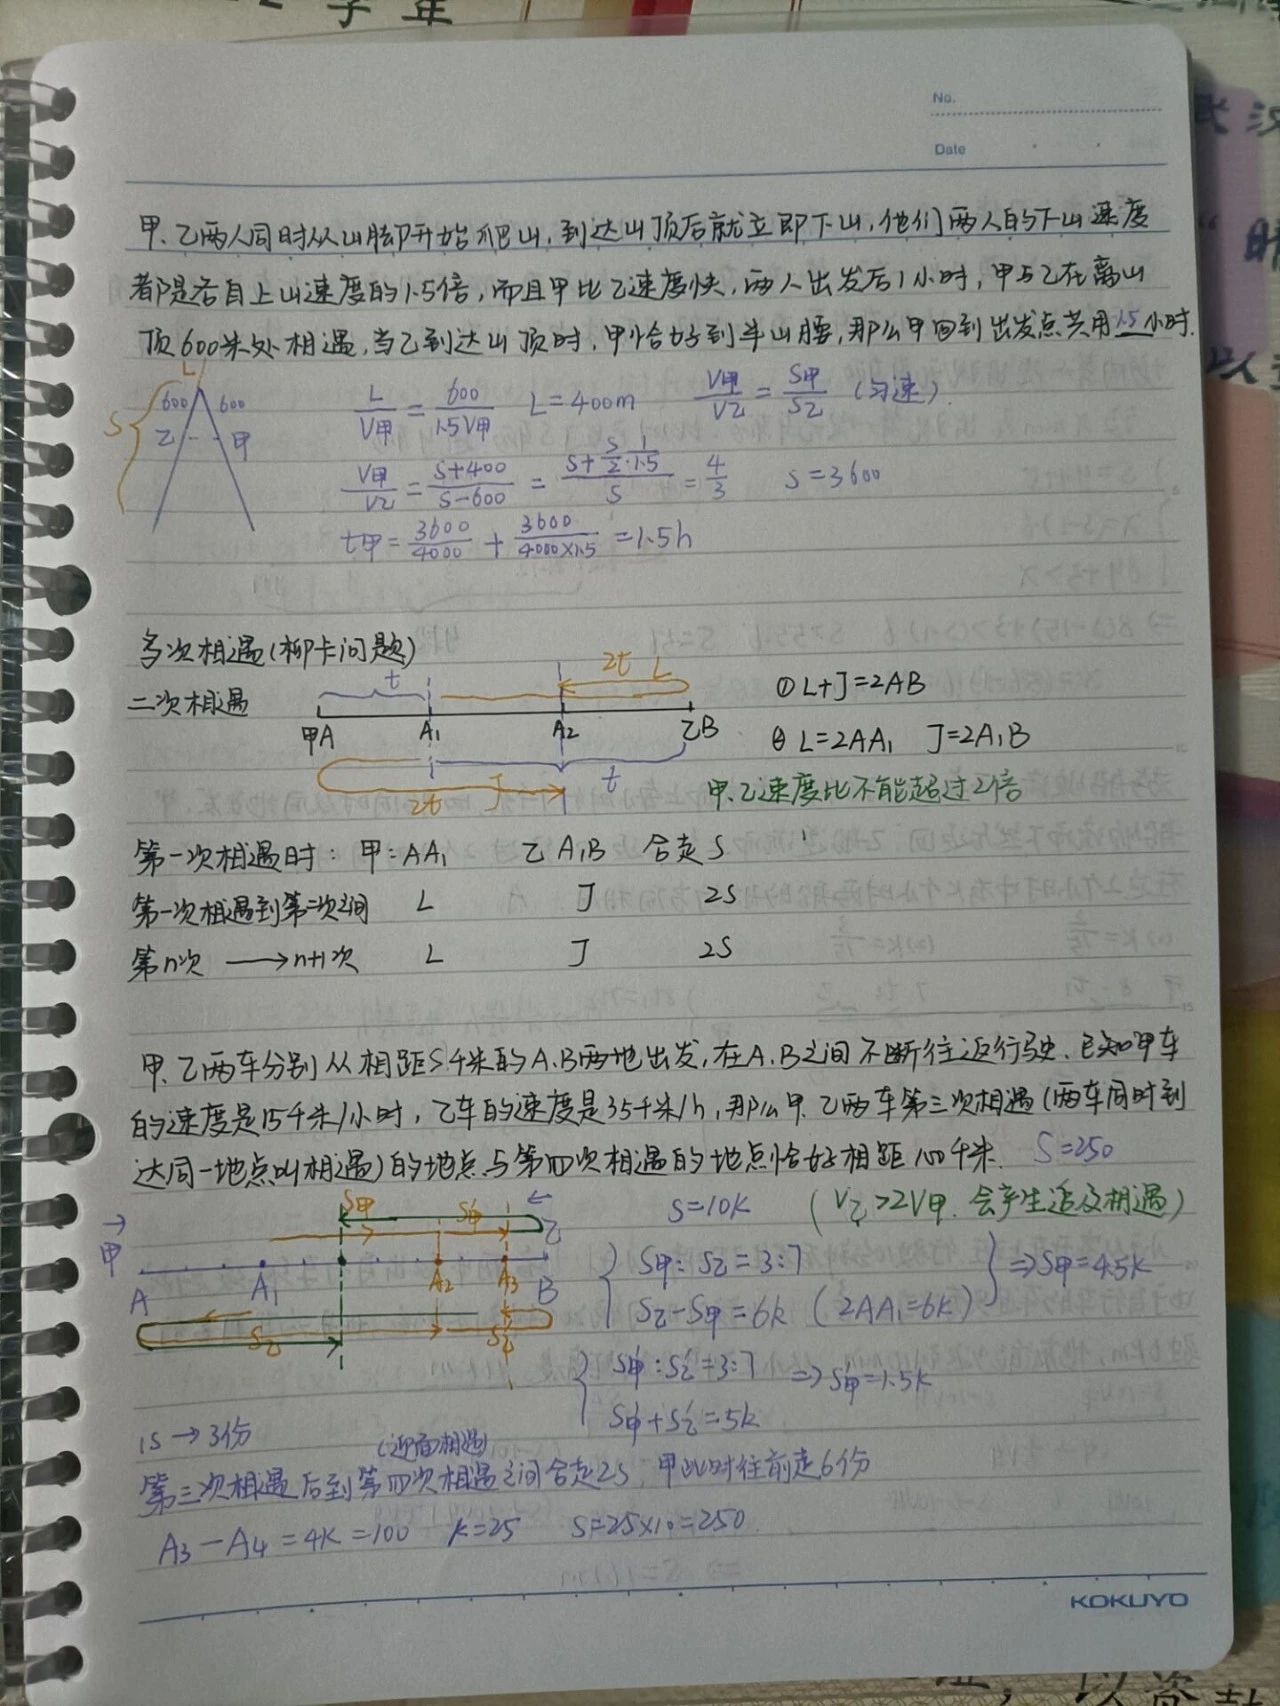 学年
No.
Date
甲、乙两人同时从山脚开始爬山,到达山顶后就立即下山,他们两人的下山速度
都是各自上山速度的1.5倍,而且甲比乙速度快,两人出发后1小时,甲与乙在离山
顶600米处相遇,当乙到达山顶时,甲恰好到半山腰,那么甲回到出发点共用1.5小时.
L
S 600 600
乙 甲
L/V甲 = 600/1.5V甲 L=400m V甲/V乙 = S甲/S乙 (匀速)
V甲/V乙 = (S+400)/(S-600) = (S+S/2·1/1.5)/S = 4/3 S=3600
t甲 = 3600/4000 + 3600/(4000×1.5) = 1.5h
多次相遇(柳卡问题)
二次相遇
t 2t L
甲A A1 A2 乙B
2t J t
① L+J=2AB
② L=2AA1 J=2A1B
甲.乙速度比不能超过2倍
第一次相遇时: 甲:AA1 乙A1B 合走S
第一次相遇到第二次之间 L J 2S
第n次 → n+1次 L J 2S
甲、乙两车分别从相距S千米的A.B两地出发,在A.B之间不断往返行驶、已知甲车
的速度是15千米/小时,乙车的速度是35千米/h,那么甲.乙两车第三次相遇(两车同时到
达同一地点叫相遇)的地点与第四次相遇的地点恰好相距100千米. S=250
S甲 S甲' 乙
甲
A A1 A2 A3 B
S乙 S乙'
S=10k (V乙>2V甲.会产生追及相遇)
S甲:S乙=3:7
S乙-S甲=6k (2AA1=6k) ⇒S甲=4.5k
S甲':S乙'=3:7 ⇒S甲'=1.5k
S甲'+S乙'=5k
1S→3份
(迎面相遇)
第三次相遇后到第四次相遇之间合走2S,甲此时往前走6份
A3-A4=4k=100 k=25 S=25×10=250.
KOKUYO